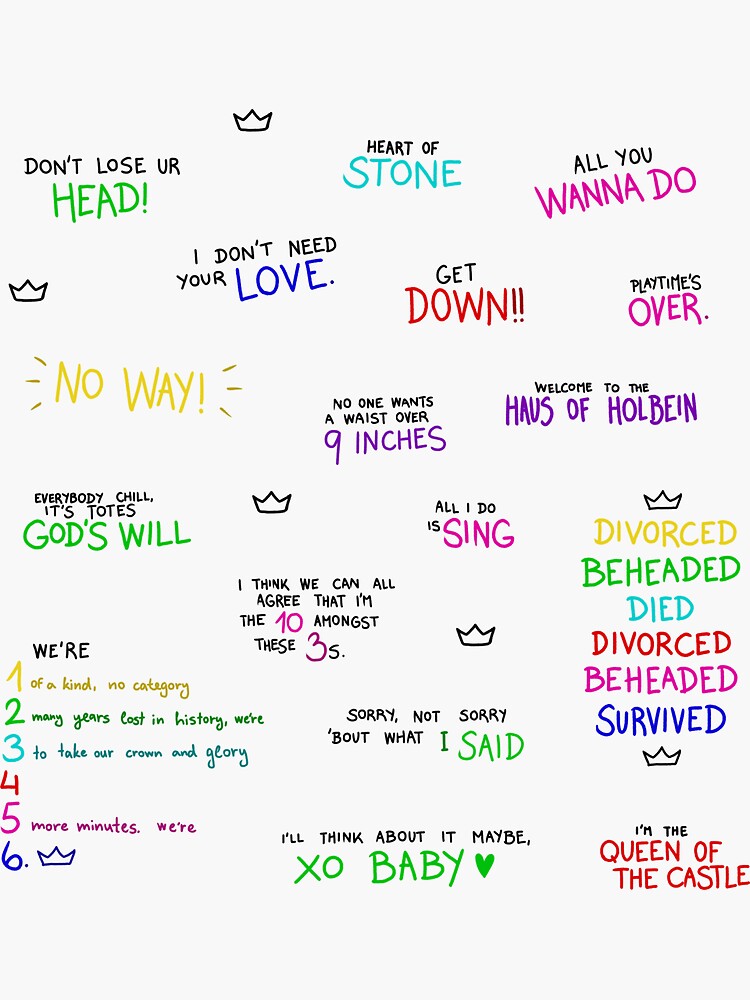 DON'T LOSE UR
HEAD!
HEART OF
STONE
ALL YOU
WANNA DO
I DON'T NEED
YOUR LOVE.
GET
DOWN!!
PLAYTIME'S
OVER.
NO WAY!
NO ONE WANTS
A WAIST OVER
9 INCHES
WELCOME TO THE
HAUS OF HOLBEIN
EVERYBODY CHILL,
IT'S TOTES
GOD'S WILL
ALL I DO
IS SING
DIVORCED
BEHEADED
DIED
DIVORCED
BEHEADED
SURVIVED
I THINK WE CAN ALL
AGREE THAT I'M
THE 10 AMONGST
THESE 3s.
WE'RE
1 of a kind, no category
2 many years lost in history, we're
3 to take our crown and glory
4
5 more minutes. we're
6.
SORRY, NOT SORRY
'BOUT WHAT I SAID
I'LL THINK ABOUT IT MAYBE,
XO BABY
I'M THE
QUEEN OF
THE CASTLE